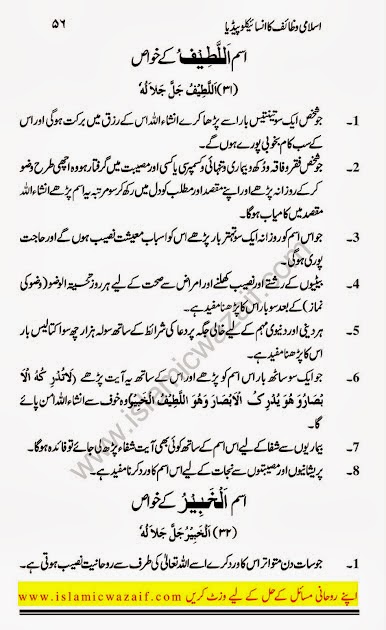 اسلامی وظائف کا انسائیکلوپیڈیا ۵۶
اسم اَللَّطِیْفُ کے خواص
(۳۱) اَللَّطِیْفُ جَلَّ جَلَالُہٗ
1۔ جو شخص ایک سو تینتیس بار اسے پڑھا کرے انشاء اللہ اس کے رزق میں برکت ہوگی اور اس
کے سب کام بخوبی پورے ہوں گے۔
2۔ جو شخص فقر و فاقہ و دکھ و بیماری و تنہائی و کسمپرسی یا کسی اور مصیبت میں گرفتار ہو وہ اچھی طرح وضو
کر کے روزانہ پڑھے اور اپنے مقصد اور مطلب کو دل میں رکھ کر سو مرتبہ یہ اسم پڑھے انشاء اللہ
مقصد میں کامیاب ہوگا۔
3۔ جو اس اسم کو روزانہ ایک سو تہتر بار پڑھے اس کو اسباب معیشت نصیب ہوں گے اور حاجت
پوری ہوگی۔
4۔ بیٹیوں کے رشتے اور نصیب کھلنے اور امراض سے صحت کے لیے ہر روز تحیۃ الوضو (وضو کی
نماز) کے بعد سو بار اس کا پڑھنا مفید ہے۔
5۔ ہر دینی اور دنیوی مہم کے لیے خالی جگہ پر دعا کی شرائط کے ساتھ سولہ ہزار چھ سو اکتالیس بار
اس کا پڑھنا مفید ہے۔
6۔ جو ایک سو ساٹھ بار اس اسم کو پڑھے اور اس کے ساتھ یہ آیت پڑھے (لَا تُدْرِ کُہُ الْاَ
بْصَارُ وَ ھُوَ یُدْرِکُ الْاَبْصَارَ وَھُوَ اللَّطِیْفُ الْخَبِیْرُ) وہ خوف سے انشاء اللہ امن پائے
گا
7۔ بیماریوں سے شفا کے لیے اس اسم کے ساتھ کوئی بھی آیت شفاء پڑھ لی جائے تو فائدہ ہوگا۔
8۔ پریشانیوں اور مصیبتوں سے نجات کے لیے اس اسم کا ورد کرنا مفید ہے۔
اسم اَلْخَبِیْرُ کے خواص
(۳۲) اَلْخَبِیْرُ جَلَّ جَلَالُہٗ
1۔ جو سات دن متواتر اس کا ورد کرے اسے اللہ تعالیٰ کی طرف سے روحانیت نصیب ہوتی ہے۔
اپنے روحانی مسائل کے حل کے لیے وزٹ کریں www.islamicwazaif.com
www.islamicwazaif.com